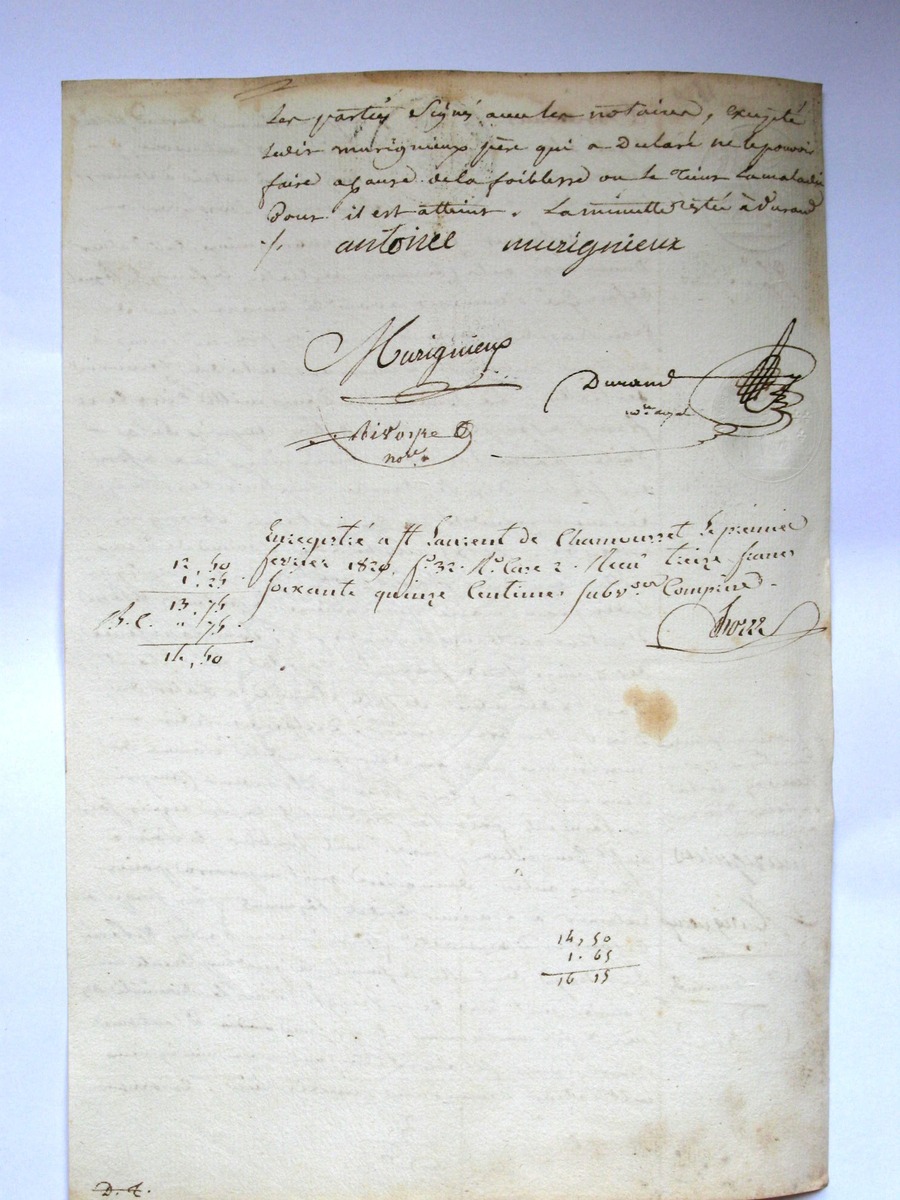 les parties signé avec les notaires, excepté
ledit murignieux père qui a declaré ne le pouvoir
faire a cause de la foiblesse ou le tient la maladie
dont il est atteint. La minutte restée à Durand
./.
antoine murignieux
Murignieux
Durand
nre royal
Rivoire
nore
Enregistré a St Laurent de Chamousset le premier
fevrier 1820, fo 32. Ro Case 2. Recu treize francs
soixante quinze Centimes subvon Comprise.
12,50
1.25
13.75
R.C. " 75
14,50
14,50
1.65
16 15
D. t.